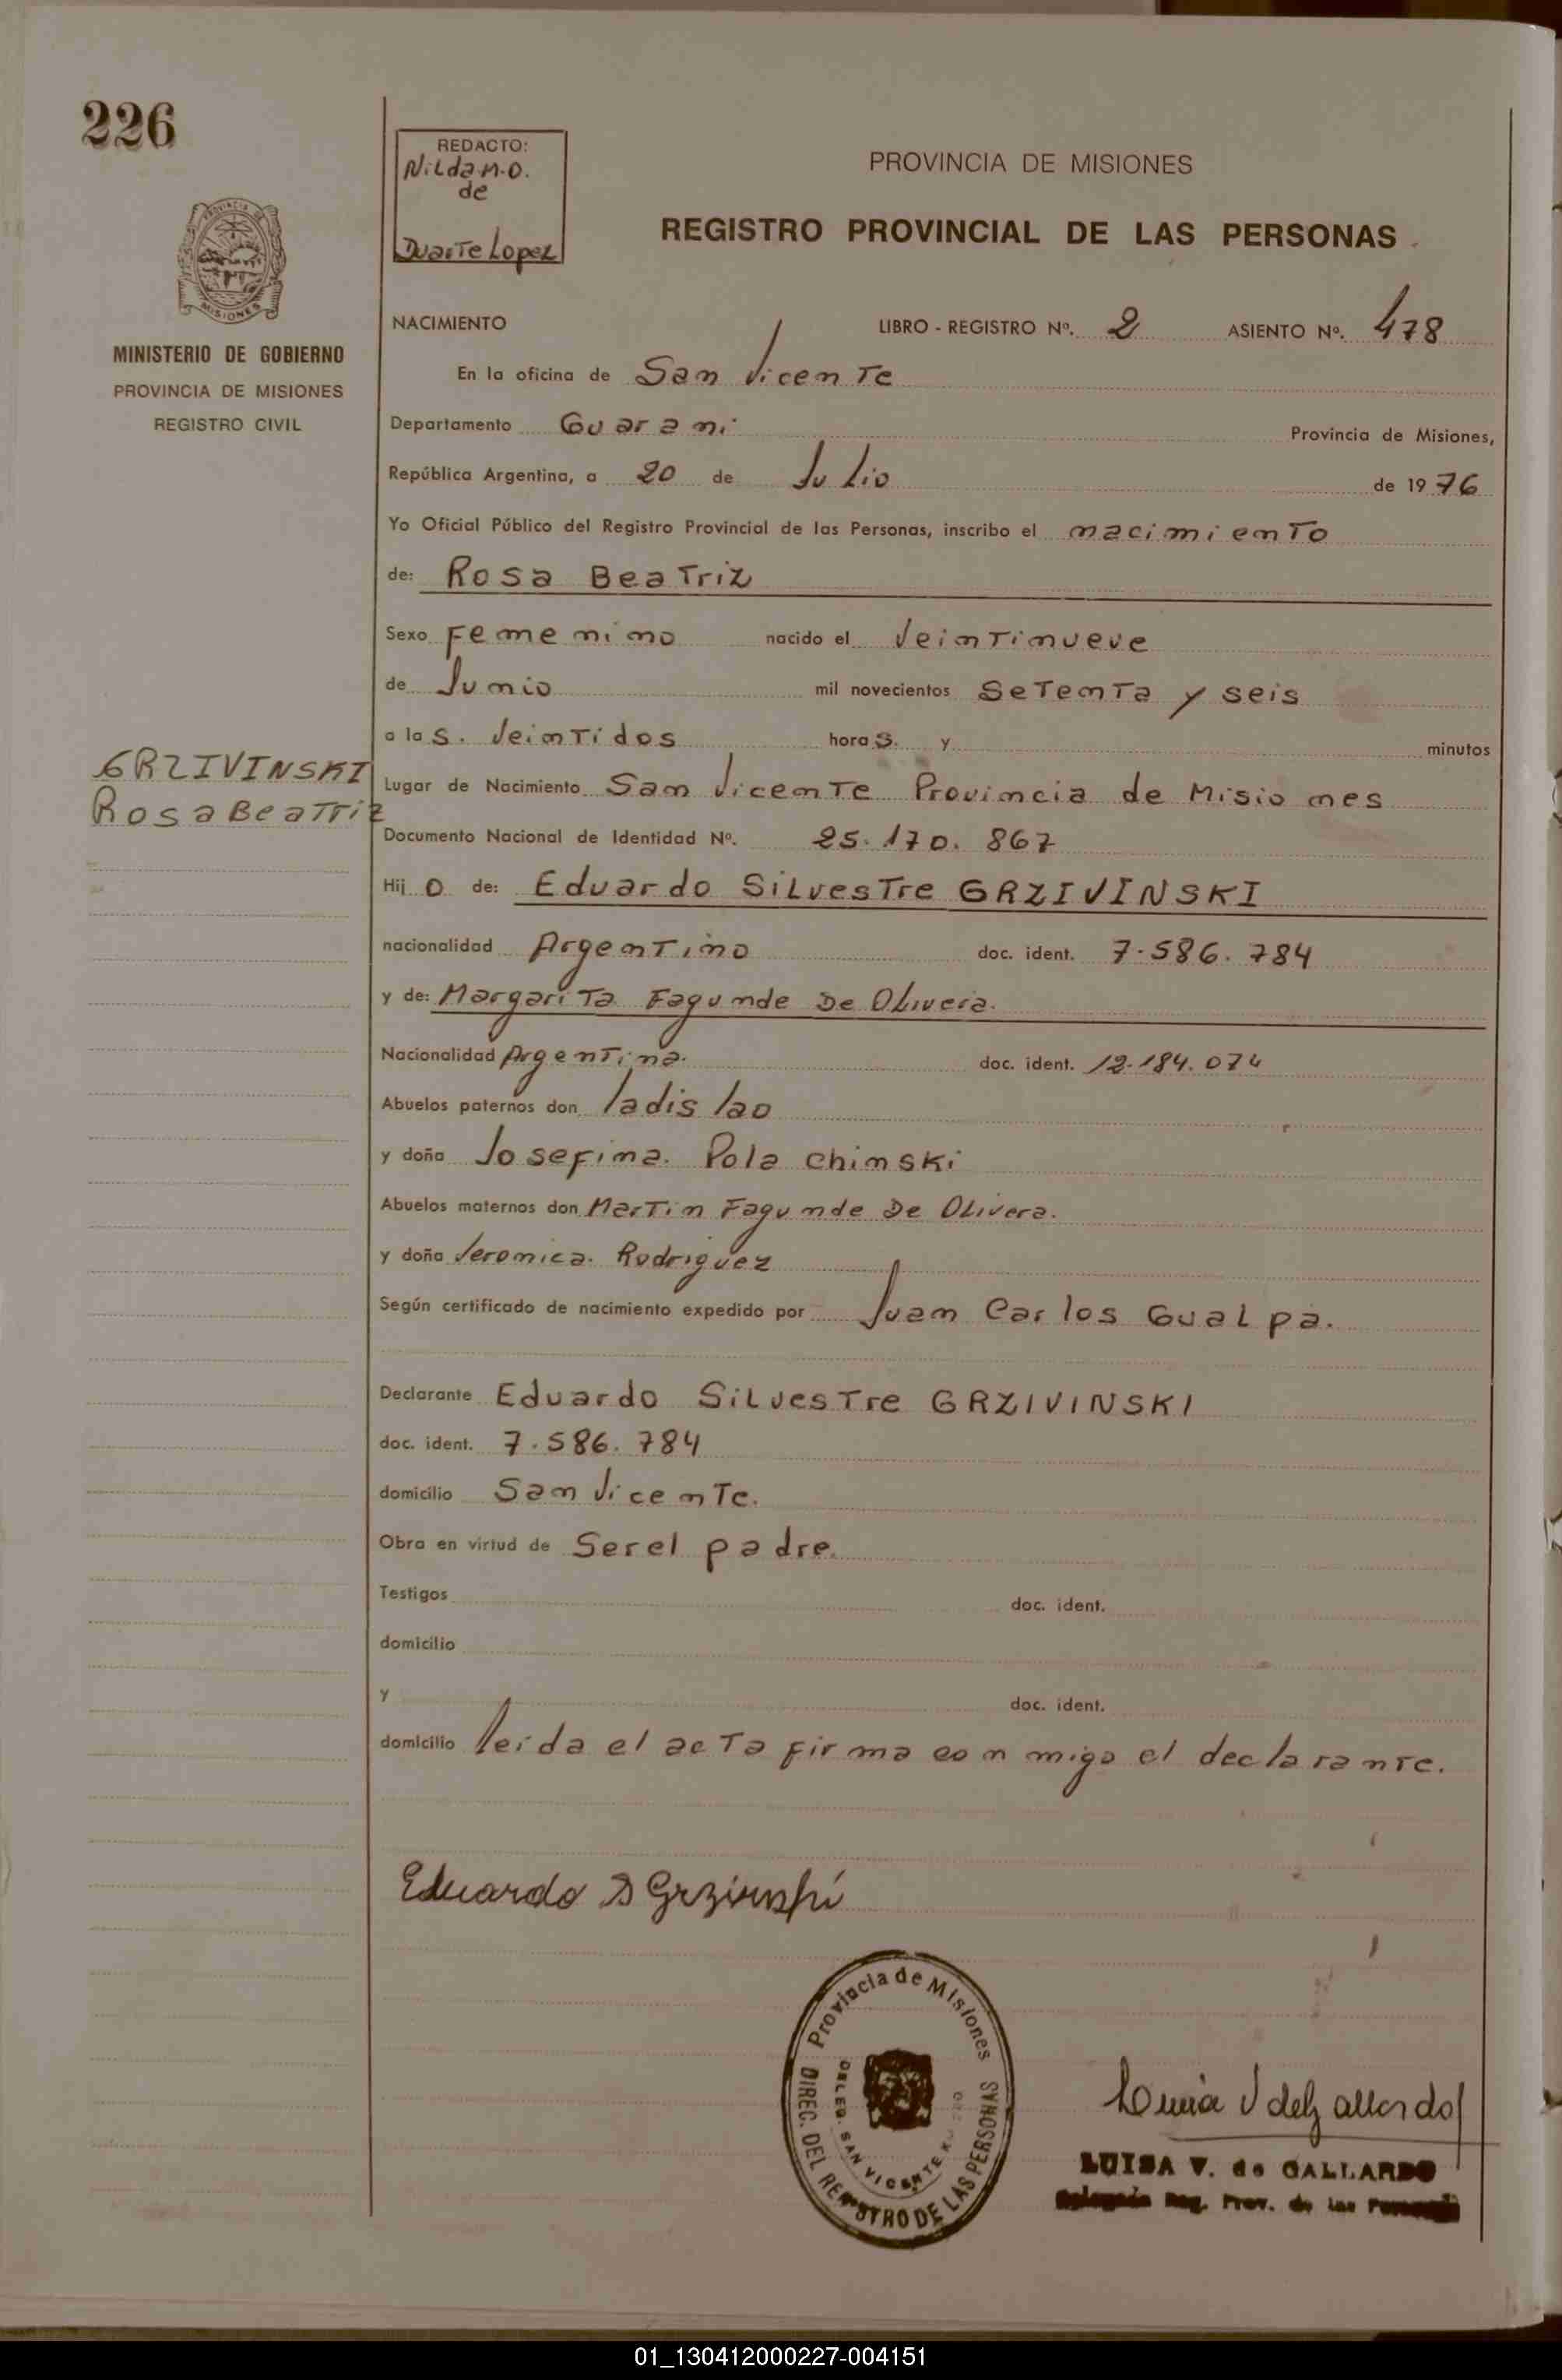 226
REDACTO:
Nilda M.O.
de
Duarte Lopez
PROVINCIA DE MISIONES
REGISTRO PROVINCIAL DE LAS PERSONAS
MINISTERIO DE GOBIERNO
PROVINCIA DE MISIONES
REGISTRO CIVIL
NACIMIENTO LIBRO - REGISTRO Nº. 2 ASIENTO Nº. 478
En la oficina de San Vicente
Departamento Guarani Provincia de Misiones,
República Argentina, a 20 de Julio de 1976
Yo Oficial Público del Registro Provincial de las Personas, inscribo el nacimiento
de: Rosa Beatriz
Sexo Femenino nacido el Veintinueve
de Junio mil novecientos Setenta y seis
a las. Veintidos horas. y minutos
GRZIVINSKI
Rosa Beatriz
Lugar de Nacimiento San Vicente Provincia de Misiones
Documento Nacional de Identidad Nº. 25.170.867
Hij o de: Eduardo Silvestre GRZIVINSKI
nacionalidad Argentino doc. ident. 7.586.784
y de: Margarita Fagunde De Olivera.
Nacionalidad Argentina. doc. ident. 12.184.074
Abuelos paternos don ladislao
y doña Josefina. Polachinski
Abuelos maternos don Martin Fagunde De Olivera.
y doña Veronica. Rodriguez
Según certificado de nacimiento expedido por Juan Carlos Gualpa.
Declarante Eduardo Silvestre GRZIVINSKI
doc. ident. 7.586.784
domicilio San Vicente.
Obra en virtud de Ser el padre.
Testigos doc. ident.
domicilio
y doc. ident.
domicilio leida el acta firma conmigo el declarante.
Eduardo S Grzivinski
Provincia de Misiones
DIREC. DEL REGISTRO DE LAS PERSONAS
DELEG. SAN VICENTE
LUISA V. de GALLARDO
Delegada Reg. Prov. de las Personas
01_130412000227-004151